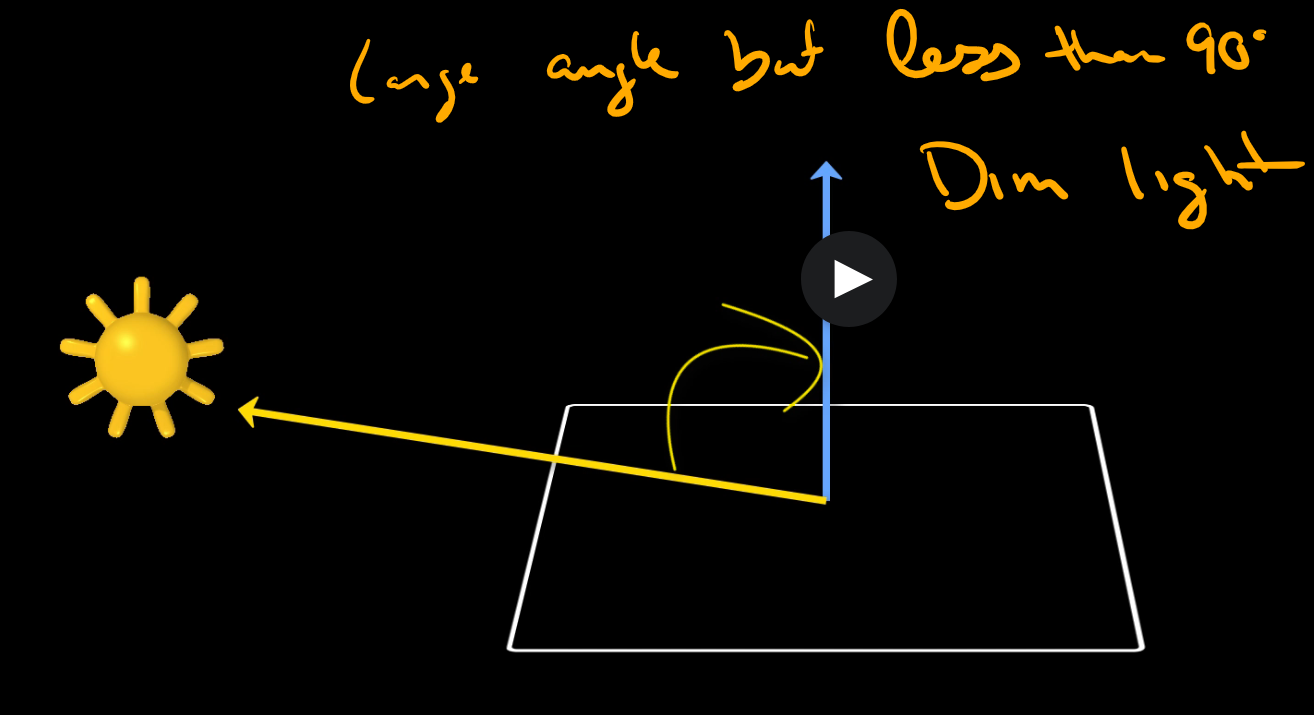 Large angle but less than 90°
Dim light